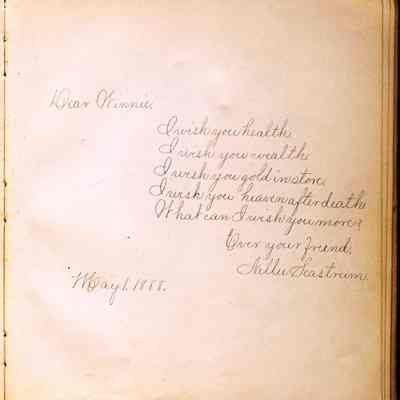 Dear Winnie.
I wish you health
I wish you wealth
I wish you gold in store,
I wish you heaven after death
What can I wish you more?
Ever your friend,
Nellie Seastrum.
May 1. 1888.